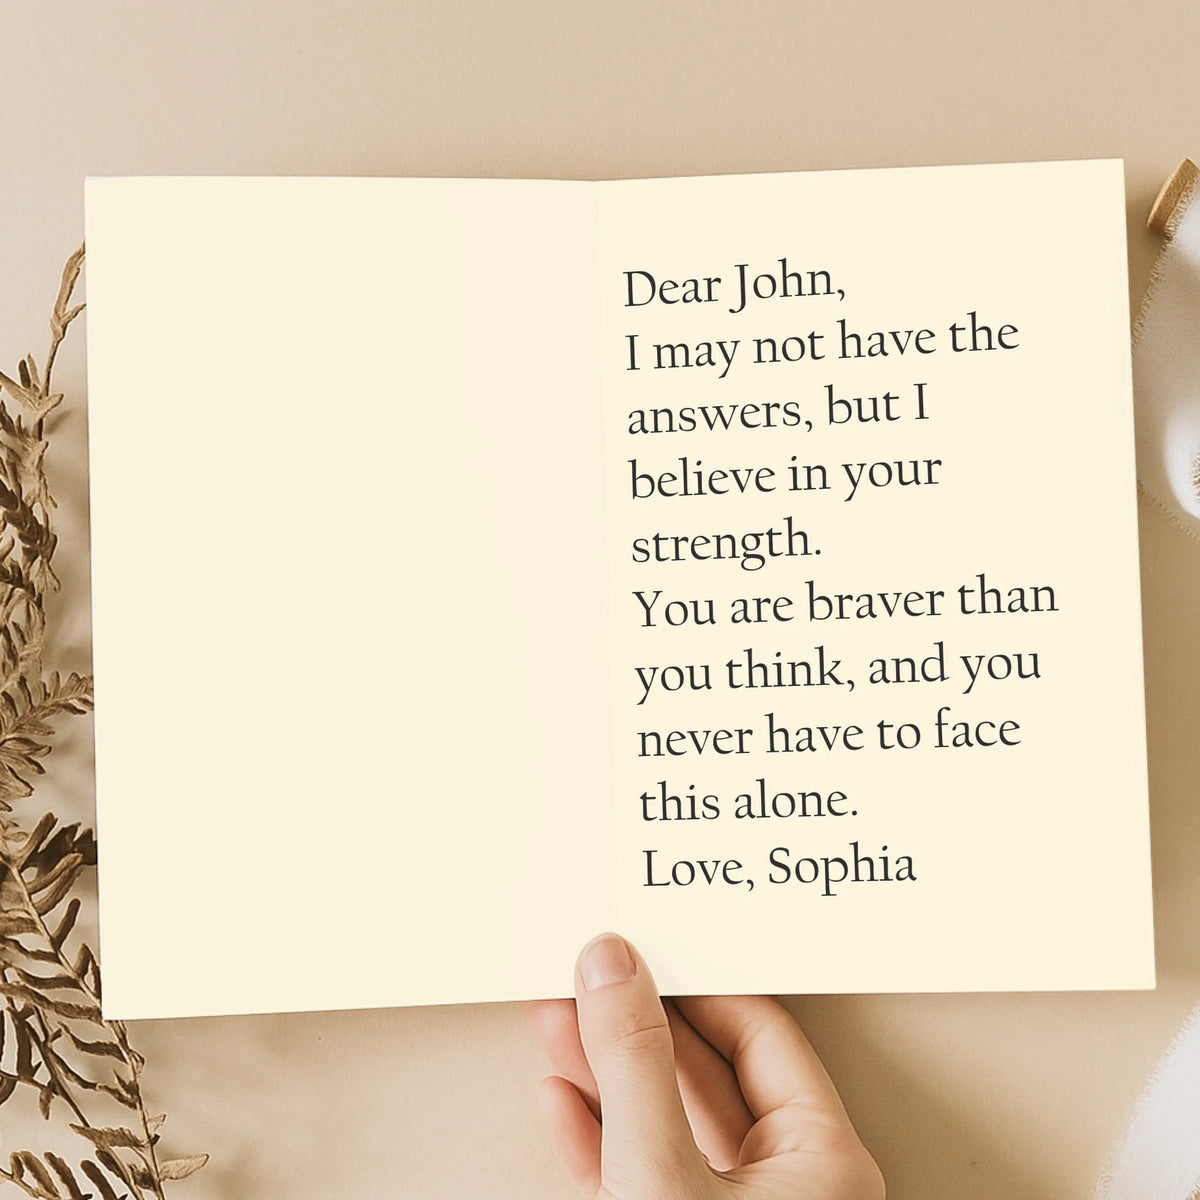 Dear John,
I may not have the
answers, but I
believe in your
strength.
You are braver than
you think, and you
never have to face
this alone.
Love, Sophia